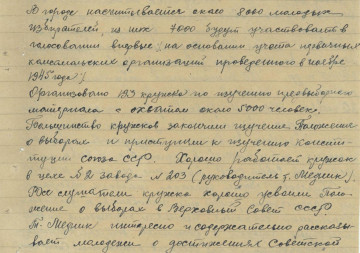 В городе насчитывается около 8000 молодых
избирателей, из них 7000 будут участвовать в
голосовании впервые (на основании учета первичных
комсомольских организаций проведенного в ноябре
1945 года)
Организовано 193 кружка по изучению предвыборного
материала с охватом около 5000 человек.
Большинство кружков закончили изучение Положения
о выборах и приступили к изучению консти-
туции Союза ССР. Хорошо работает кружок
в цехе № 2 завода № 203 (руководитель т. Медник).
Все слушатели кружка хорошо усвоили Поло-
жение о выборах в Верховный Совет СССР
Т. Медник интересно и содержательно рассказы-
вает молодежи о достижениях Советской